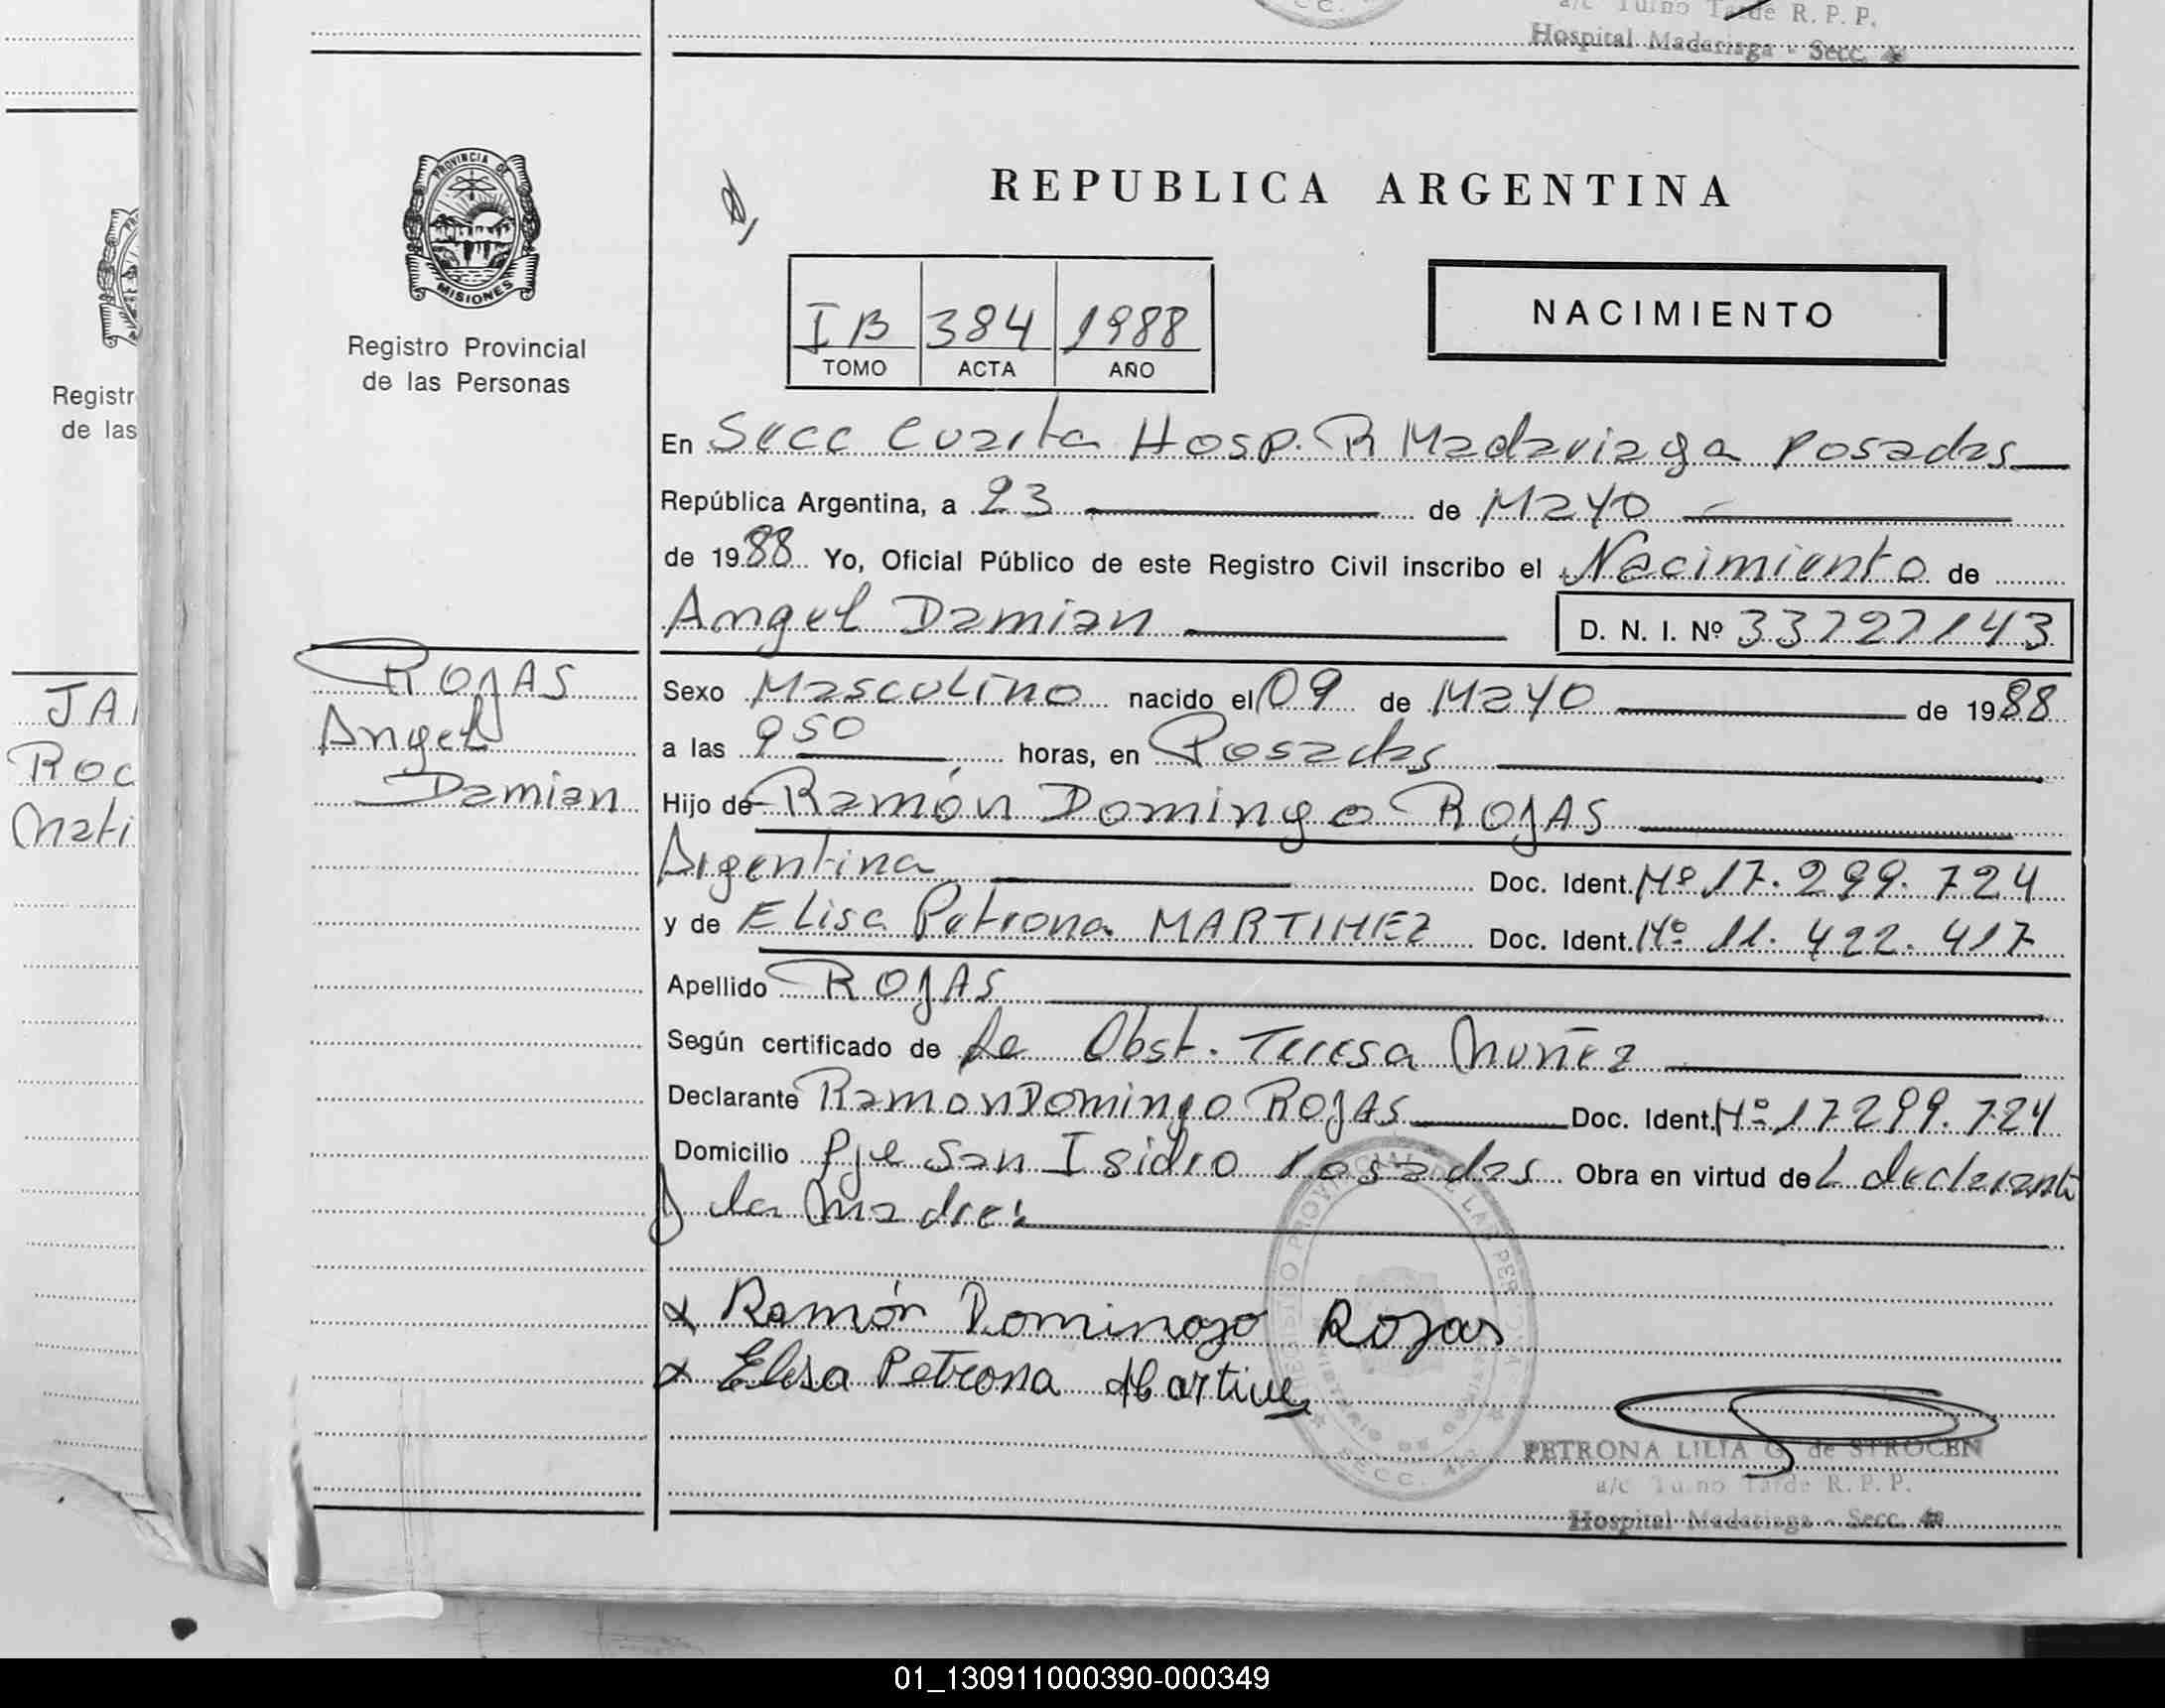 a/c Turno Tarde R. P. P.
Hospital Madariaga - Secc. 4ª
PROVINCIA DE
MISIONES
Registro Provincial
de las Personas
REPUBLICA ARGENTINA
NACIMIENTO
I B 384 1988
TOMO ACTA AÑO
En Secc Cuarta Hosp. R Madariaga Posadas
República Argentina, a 23 de Mayo
de 1988 Yo, Oficial Público de este Registro Civil inscribo el Nacimiento de
Angel Damian D. N. I. Nº 33727143
ROJAS
Angel
Damian
Sexo Masculino nacido el 09 de Mayo de 1988
a las 950 horas, en Posadas
Hijo de Ramón Domingo ROJAS
Argentina Doc. Ident. Nº 17.299.724
y de Elisa Petrona MARTINEZ Doc. Ident. Nº 11.422.417
Apellido ROJAS
Según certificado de La Obst. Teresa Muñez
Declarante Ramon Domingo ROJAS Doc. Ident. Nº 17299.724
Domicilio Pje San Isidro Posadas Obra en virtud de L declarante
y la Madre
Ramón Domingo Rojas
Elisa Petrona Martinez
PETRONA LILIA G. de STROCEN
a/c Turno Tarde R. P. P.
Hospital Madariaga - Secc. 4ª
Registr
de las
JA
Roc
Mati
01_130911000390-000349